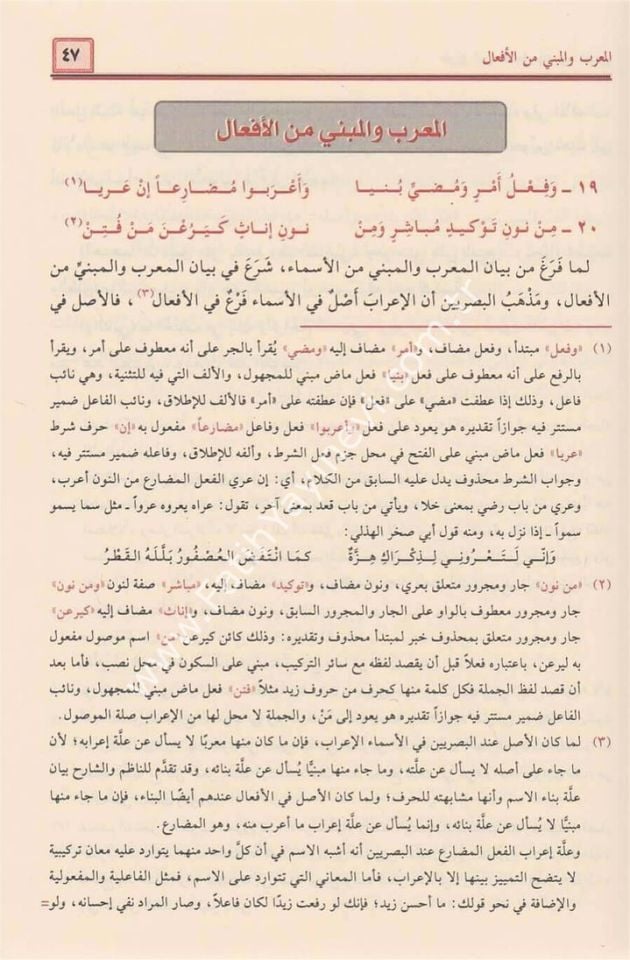 المعرب والمبني من الأفعال
٤٧
المعرب والمبني من الأفعال
١٩ ـ وَفِعْلُ أَمْرٍ وَمُضيٍّ بُنيا وَأَعْرَبوا مُضَارِعاً إنْ عَريا(١)
٢٠ ـ مِنْ نونِ تَوْكيدٍ مُباشِرٍ وَمِنْ نونِ إناثٍ كَيَرُعْنَ مَنْ فُتِنْ(٢)
لما فَرَغَ من بيان المعرب والمبني من الأسماء، شَرَعَ في بيان المعرب والمبنيّ من
الأفعال، ومَذْهَبُ البصريين أن الإعرابَ أَصْلٌ في الأسماء فَرْعٌ في الأفعال(٣)، فالأصل في
(١) «وفعل» مبتدأ، وفعل مضاف، و«أمر» مضاف إليه «ومضي» يُقرأ بالجر على أنه معطوف على أمر، ويقرأ
بالرفع على أنه معطوف على فعل «بنيا» فعل ماض مبني للمجهول، والألف التي فيه للتثنية، وهي نائب
فاعل، وذلك إذا عطفت «مضي» على «فعل» فإن عطفته على «أمر» فالألف للإطلاق، ونائب الفاعل ضمير
مستتر فيه جوازاً تقديره هو يعود على فعل «وأعربوا» فعل وفاعل «مضارعاً» مفعول به «إن» حرف شرط
«عريا» فعل ماض مبني على الفتح في محل جزم فعل الشرط، وألفه للإطلاق، وفاعله ضمير مستتر فيه،
وجواب الشرط محذوف يدل عليه السابق من الكلام، أي: إن عري الفعل المضارع من النون أعرب،
وعري من باب رضي بمعنى خلا، ويأتي من باب قعد بمعنى آخر، تقول: عراه يعروه عرواً ـ مثل سما يسمو
سمواً ـ إذا نزل به، ومنه قول أبي صخر الهذلي:
وَإنّي لَتَعْرُوني لِذِكْراكِ هِزَّةٌ كمَا انْتَفَضَ العُصْفُورُ بَلَّلَهُ القَطْرُ
(٢) «من نون» جار ومجرور متعلق بعري، ونون مضاف، و«توكيد» مضاف إليه، «مباشر» صفة لنون «ومن نون»
جار ومجرور معطوف بالواو على الجار والمجرور السابق، ونون مضاف، و«إناث» مضاف إليه «كيرعن»
جار ومجرور متعلق بمحذوف خبر لمبتدأ محذوف وتقديره: وذلك كائن كيرعن «من» اسم موصول مفعول
به ليرعن، باعتباره فعلاً قبل أن يقصد لفظه مع سائر التركيب، مبني على السكون في محل نصب، فأما بعد
أن قصد لفظ الجملة فكل كلمة منها كحرف من حروف زيد مثلاً «فتن» فعل ماض مبني للمجهول، ونائب
الفاعل ضمير مستتر فيه جوازاً تقديره هو يعود إلى مَنْ، والجملة لا محل لها من الإعراب صلة الموصول.
(٣) لما كان الأصل عند البصريين في الأسماء الإعراب، فإن ما كان منها معربًا لا يسأل عن علَّة إعرابه؛ لأن
ما جاء على أصله لا يسأل عن علّته، وما جاء منها مبنيًّا يُسأل عن علَّة بنائه، وقد تقدَّم للناظم والشارح بيان
علَّة بناء الاسم وأنها مشابهته للحرف؛ ولما كان الأصل في الأفعال عندهم أيضًا البناء، فإن ما جاء منها
مبنيًّا لا يُسأل عن علَّة بنائه، وإنما يُسأل عن علَّة إعراب ما أعرب منه، وهو المضارع.
وعلَّة إعراب الفعل المضارع عند البصريين أنه أشبه الاسم في أن كلَّ واحد منهما يتوارد عليه معان تركيبية
لا يتضح التمييز بينها إلا بالإعراب، فأما المعاني التي تتوارد على الاسم، فمثل الفاعلية والمفعولية
والإضافة في نحو قولك: ما أحسن زيد؛ فإنك لو رفعت زيدًا لكان فاعلاً، وصار المراد نفي إحسانه، ولو=